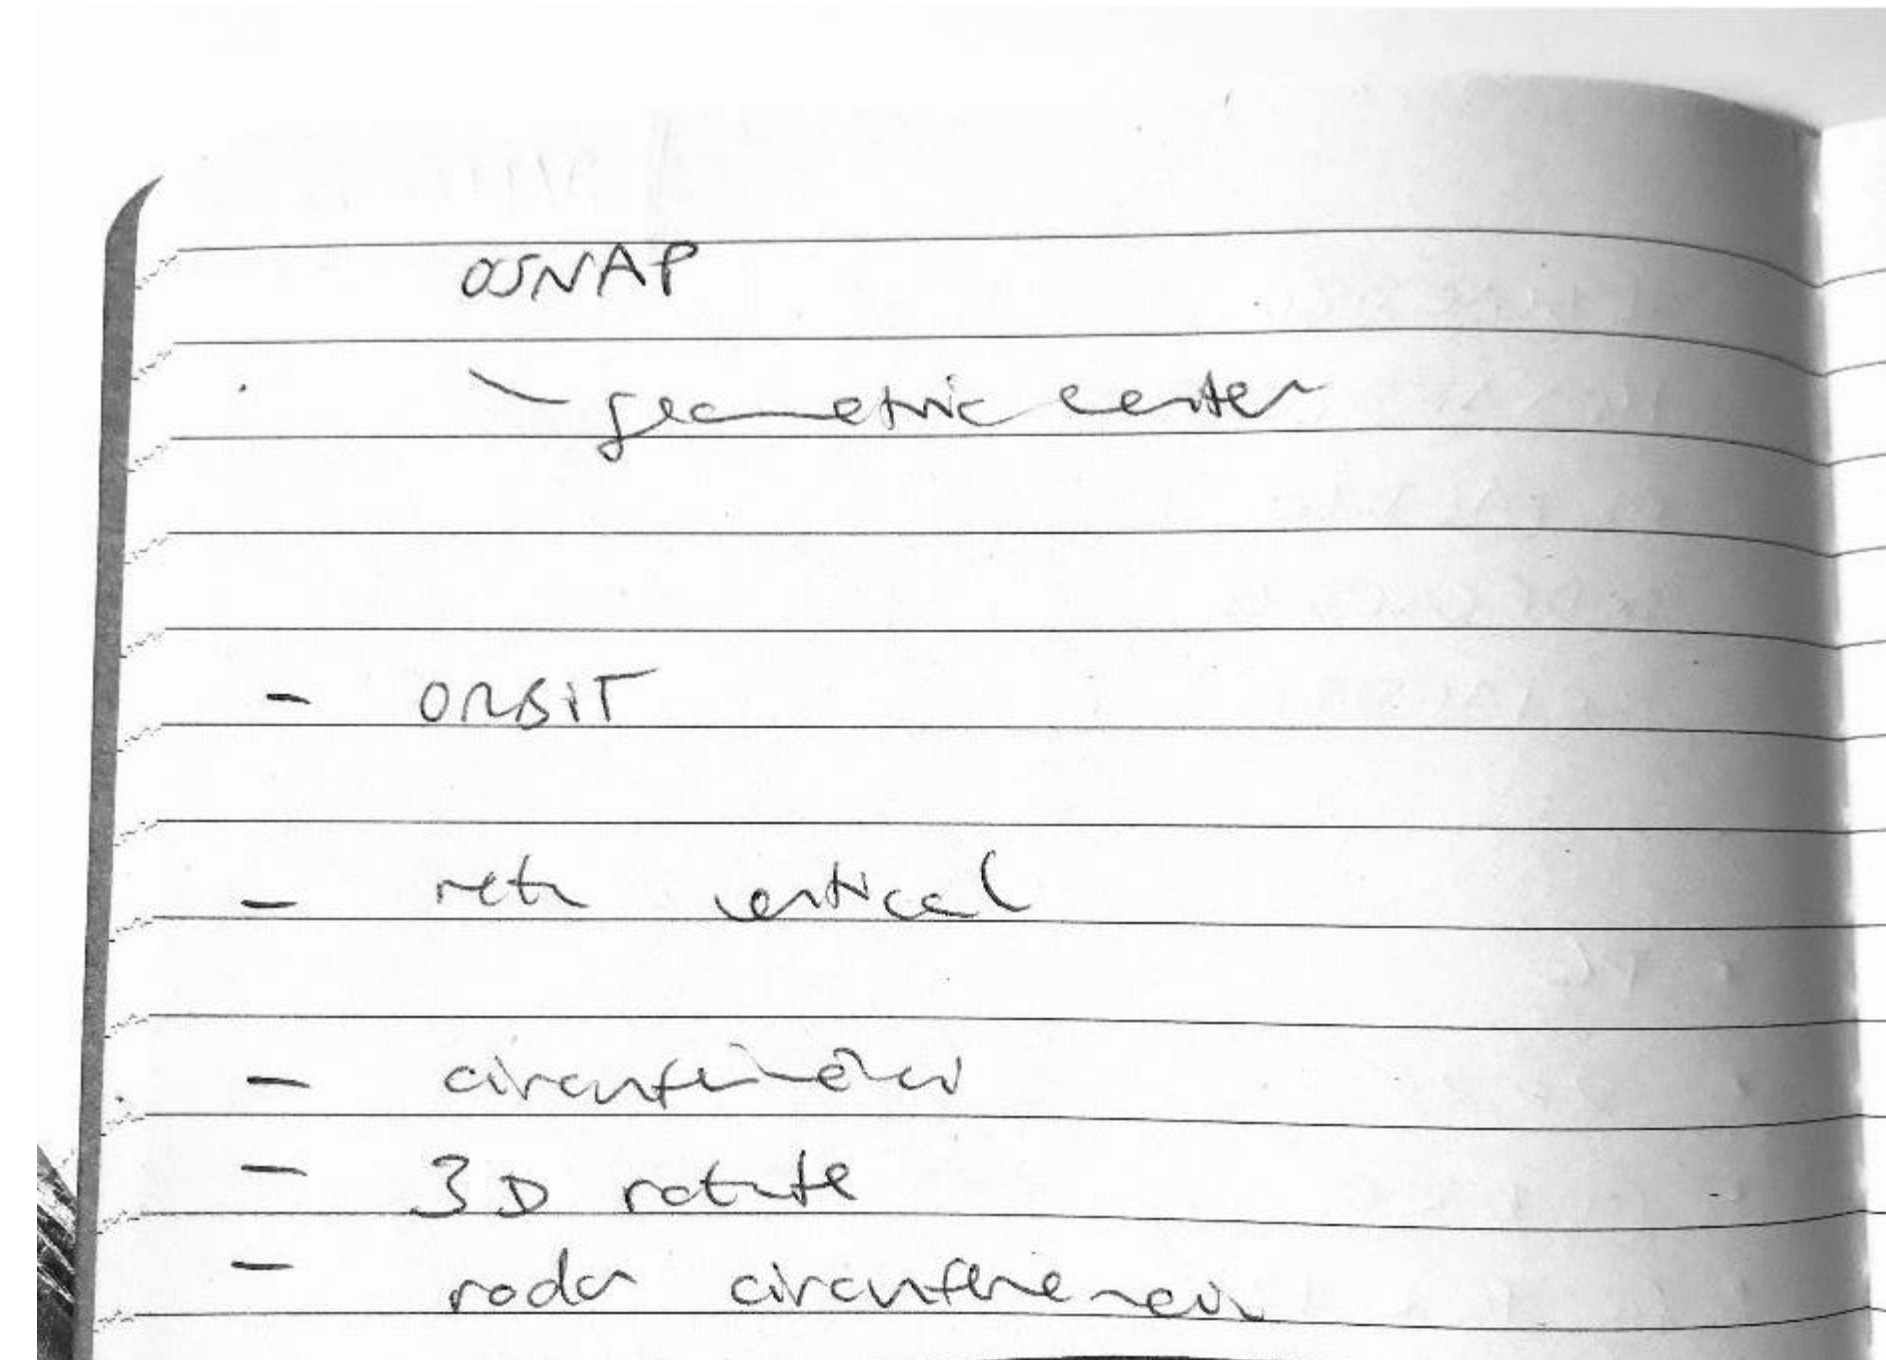 OSNAP
- geometric center
- ORBIT
- reta vertical
- circunferência
- 3D rotate
- rodar circunferencia